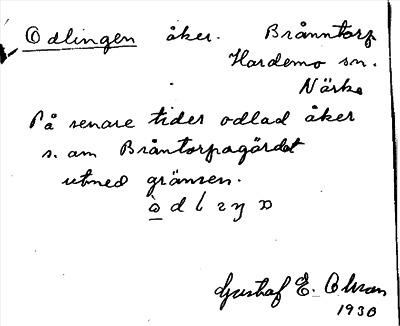 Odlingen åker. Brånntorp
Hardemo sn.
Närke
På senare tider odlad åker
s. om Bråntorpagärdet
utmed gränsen.
Gustaf E. Olsson
1930